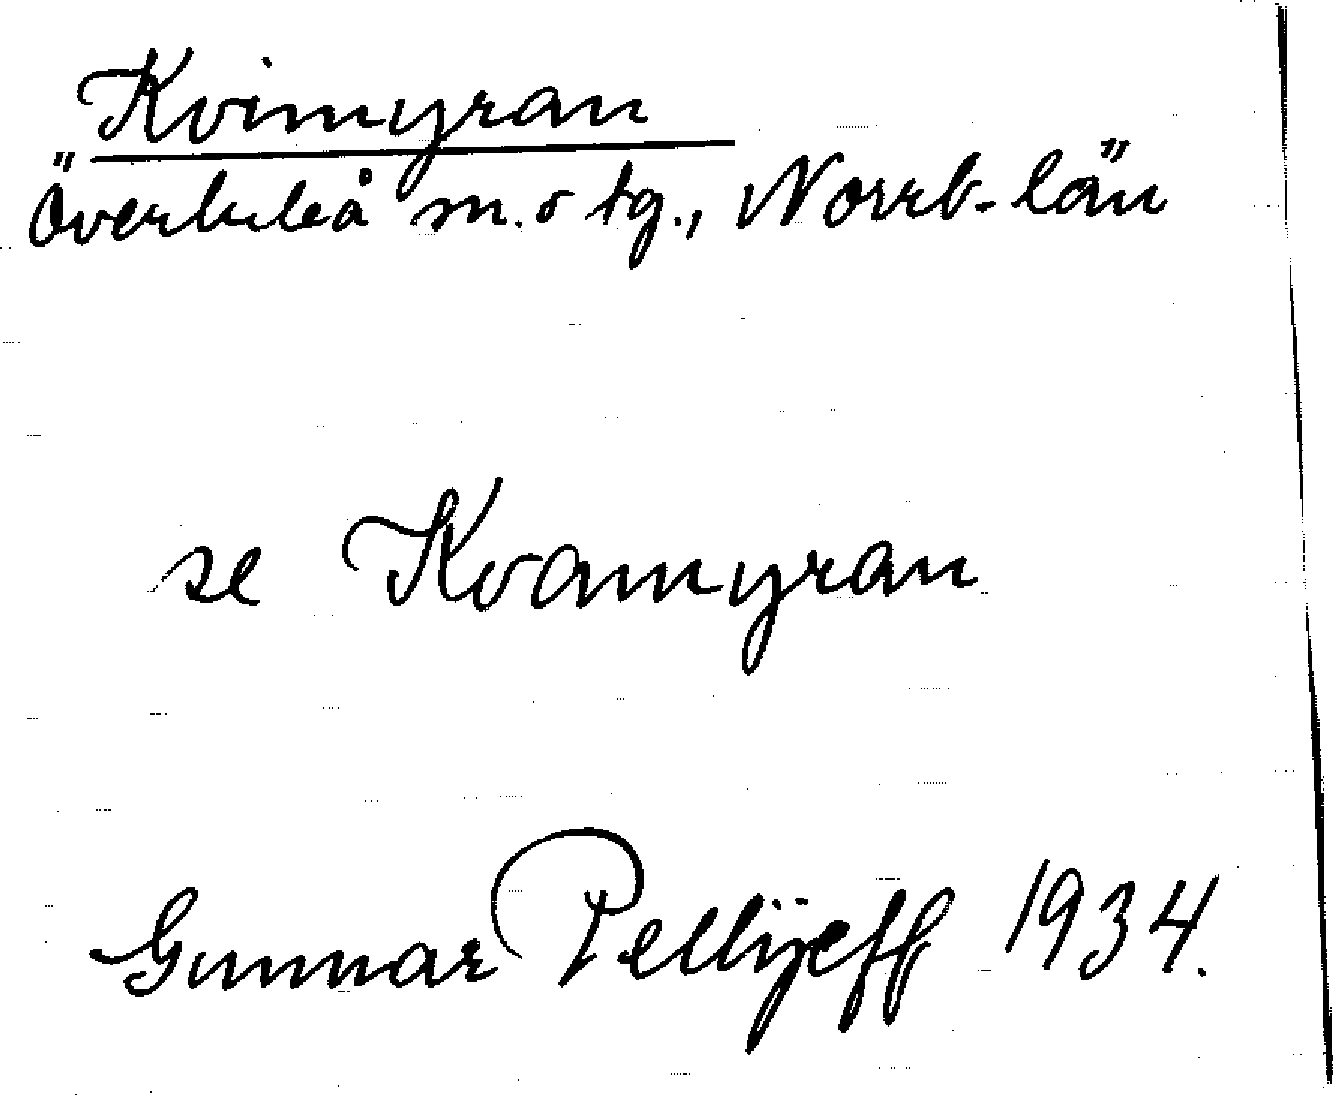 Kvimyran
Överluleå m. o tg., Norrb. län
se Kvamyran
Gunnar Pellijeff 1934.